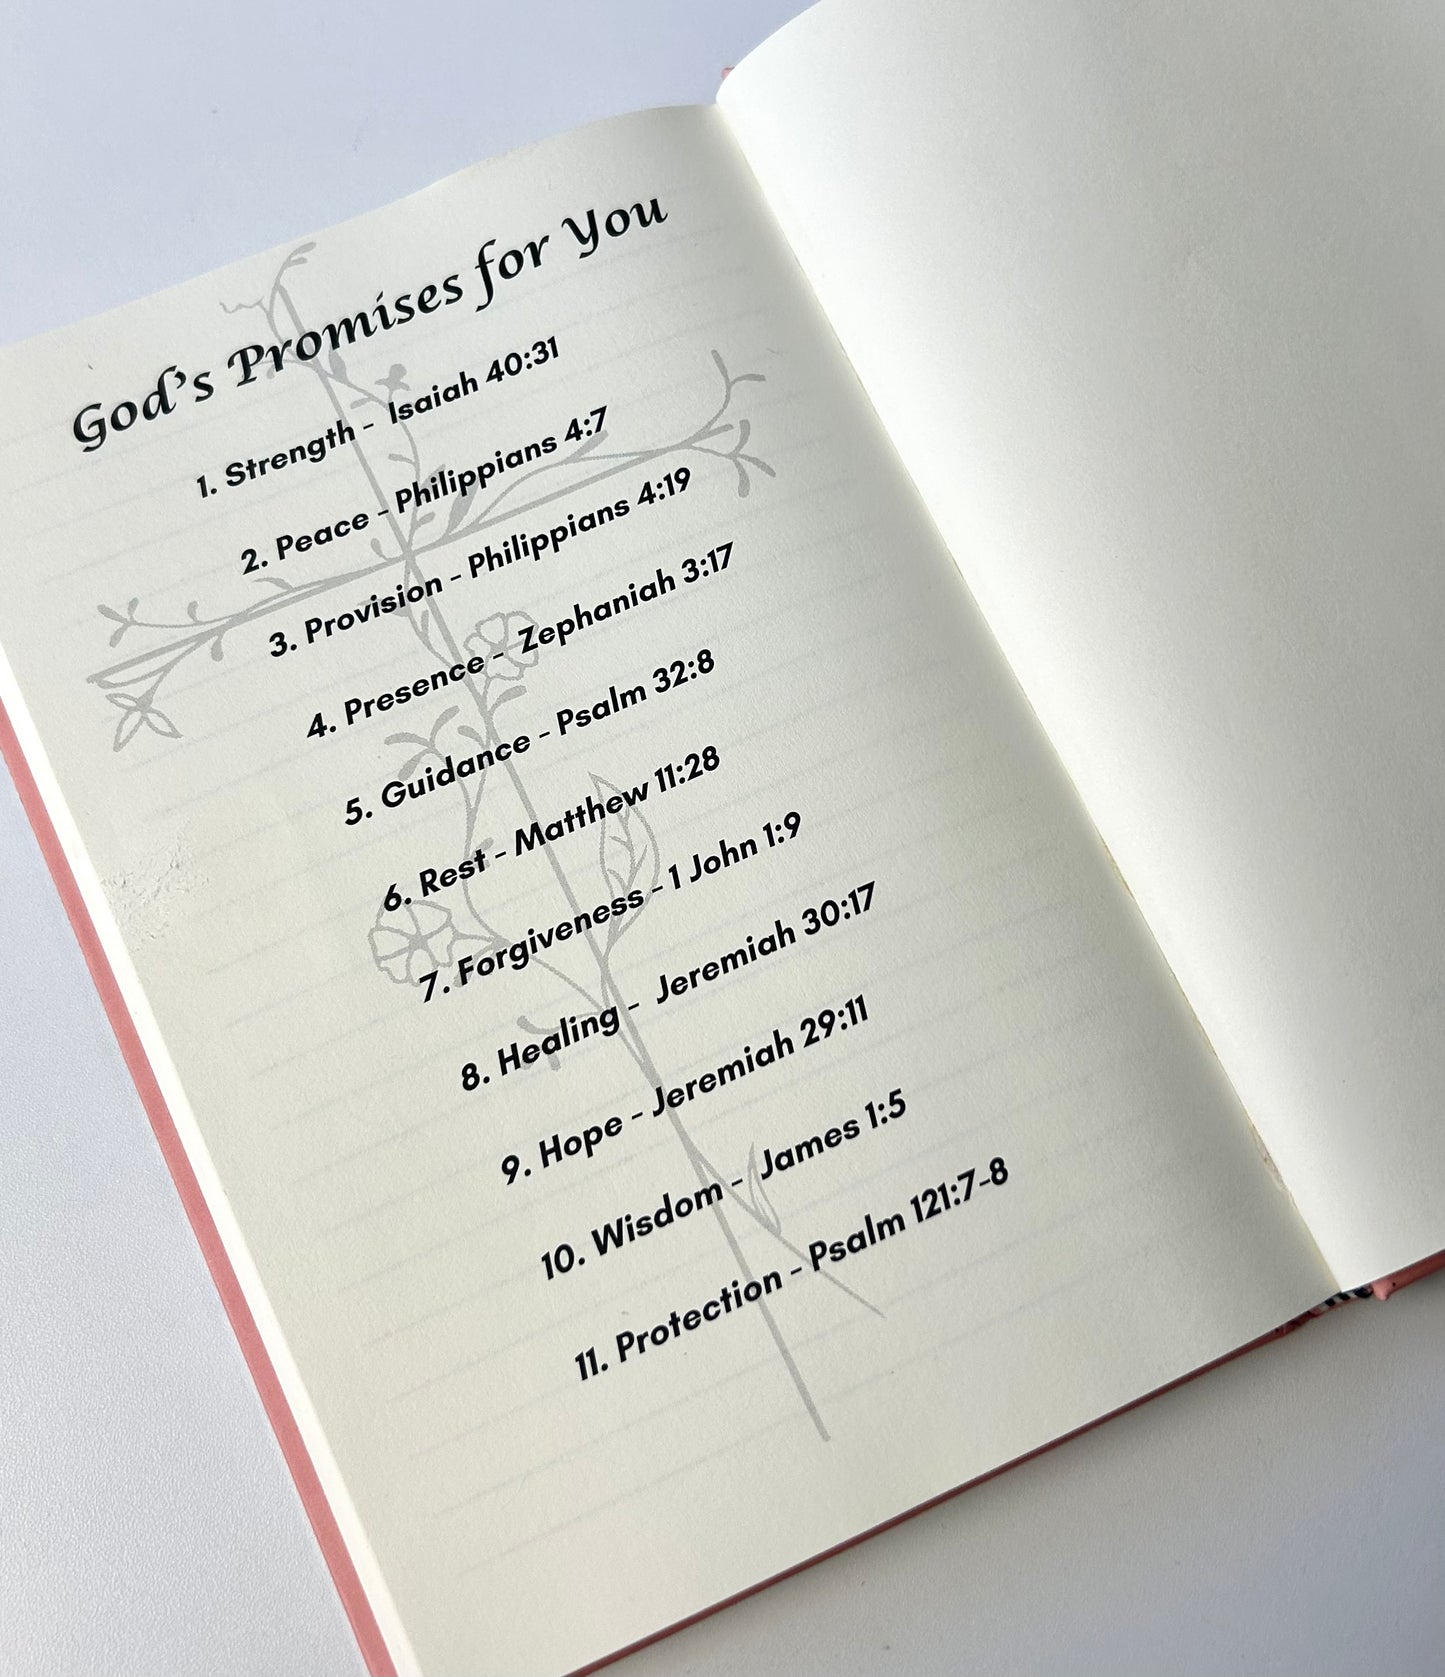 God's Promises for You
1. Strength - Isaiah 40:31
2. Peace - Philippians 4:7
3. Provision - Philippians 4:19
4. Presence - Zephaniah 3:17
5. Guidance - Psalm 32:8
6. Rest - Matthew 11:28
7. Forgiveness - 1 John 1:9
8. Healing - Jeremiah 30:17
9. Hope - Jeremiah 29:11
10. Wisdom - James 1:5
11. Protection - Psalm 121:7-8